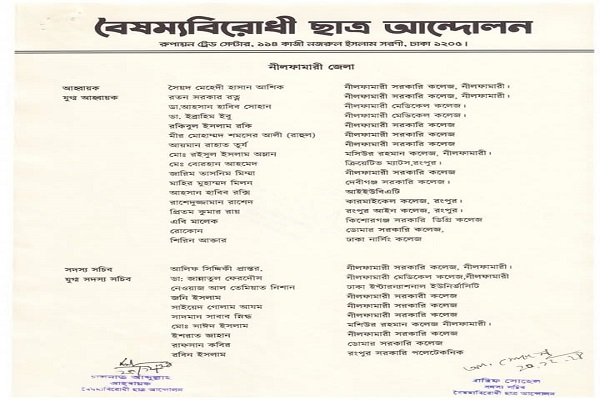 বৈষম্যবিরোধী ছাত্র আন্দোলন
রুপায়ন ট্রেড সেন্টার, ১১৪ কাজী নজরুল ইসলাম সরণী, ঢাকা ১২০৫।
নীলফামারী জেলা
আহ্বায়ক সৈয়দ মেহেদী হাসান আশিক নীলফামারী সরকারি কলেজ, নীলফামারী।
যুগ্ম আহ্বায়ক রতন সরকার রত্ন নীলফামারী সরকারি কলেজ, নীলফামারী।
ডা.আহসান হাবিব সোহান নীলফামারী মেডিকেল কলেজ।
ডা. ইব্রাহিম ইবু নীলফামারী মেডিকেল কলেজ।
রকিবুল ইসলাম রকি নীলফামারী সরকারি কলেজ
মীর মোহাম্মদ শমসের আলী (রাহুল) নীলফামারী সরকারি কলেজ
আয়মান রাহাত তূর্য নীলফামারী সরকারি কলেজ
মোঃ রইসুল ইসলাম অম্লান মসিউর রহমান কলেজ, নীলফামারী।
মোঃ বোরহান আহমেদ ক্রিয়েটিভ ম্যাটস,রংপুর।
জারিম তাসনিম মিম্মা নীলফামারী সরকারি কলেজ
মাহির মুহাম্মদ মিলন দেবীগঞ্জ সরকারি কলেজ।
আহসান হাবিব রক্সি আইইউবিএটি
রাশেদুজ্জামান রাশেদ কারমাইকেল কলেজ, রংপুর।
প্রিতম কুমার রায় রংপুর আইন কলেজ, রংপুর।
এবি মালেক কিশোরগঞ্জ সরকারি ডিগ্রি কলেজ
রোকোন ডোমার সরকারি কলেজ
শিরিন আক্তার ঢাকা নার্সিং কলেজ
সদস্য সচিব আলিফ সিদ্দিকী প্রান্তর, নীলফামারী সরকারি কলেজ, নীলফামারী।
যুগ্ম সদস্য সচিব ডা: জান্নাতুল ফেরদৌস নীলফামারী মেডিকেল কলেজ,নীলফামারী
নেওয়াজ আল তেমিয়াত নিশান ঢাকা ইন্টারন্যাশনাল ইউনির্ভাসিটি
জনি ইসলাম নীলফামারী সরকারী কলেজ
সাইয়েদ গোলাম আযম নীলফামারী সরকারি কলেজ
সাদমান সাবাব স্নিগ্ধ নীলফামারী সরকারি কলেজ
মোঃ সাঈদ ইসলাম মশিউর রহমান কলেজ নীলফামারী।
ইশরাত জাহান নীলফামারী সরকারি কলেজ
রাফসান কবির ডোমার সরকারি কলেজ
রবিন ইসলাম রংপুর সরকারি পলেটেকনিক
আহ্বায়ক
বৈষম্যবিরোধী ছাত্র আন্দোলন
আরিফ সোহেল
সদস্য সচিব
বৈষম্যবিরোধী ছাত্র আন্দোলন